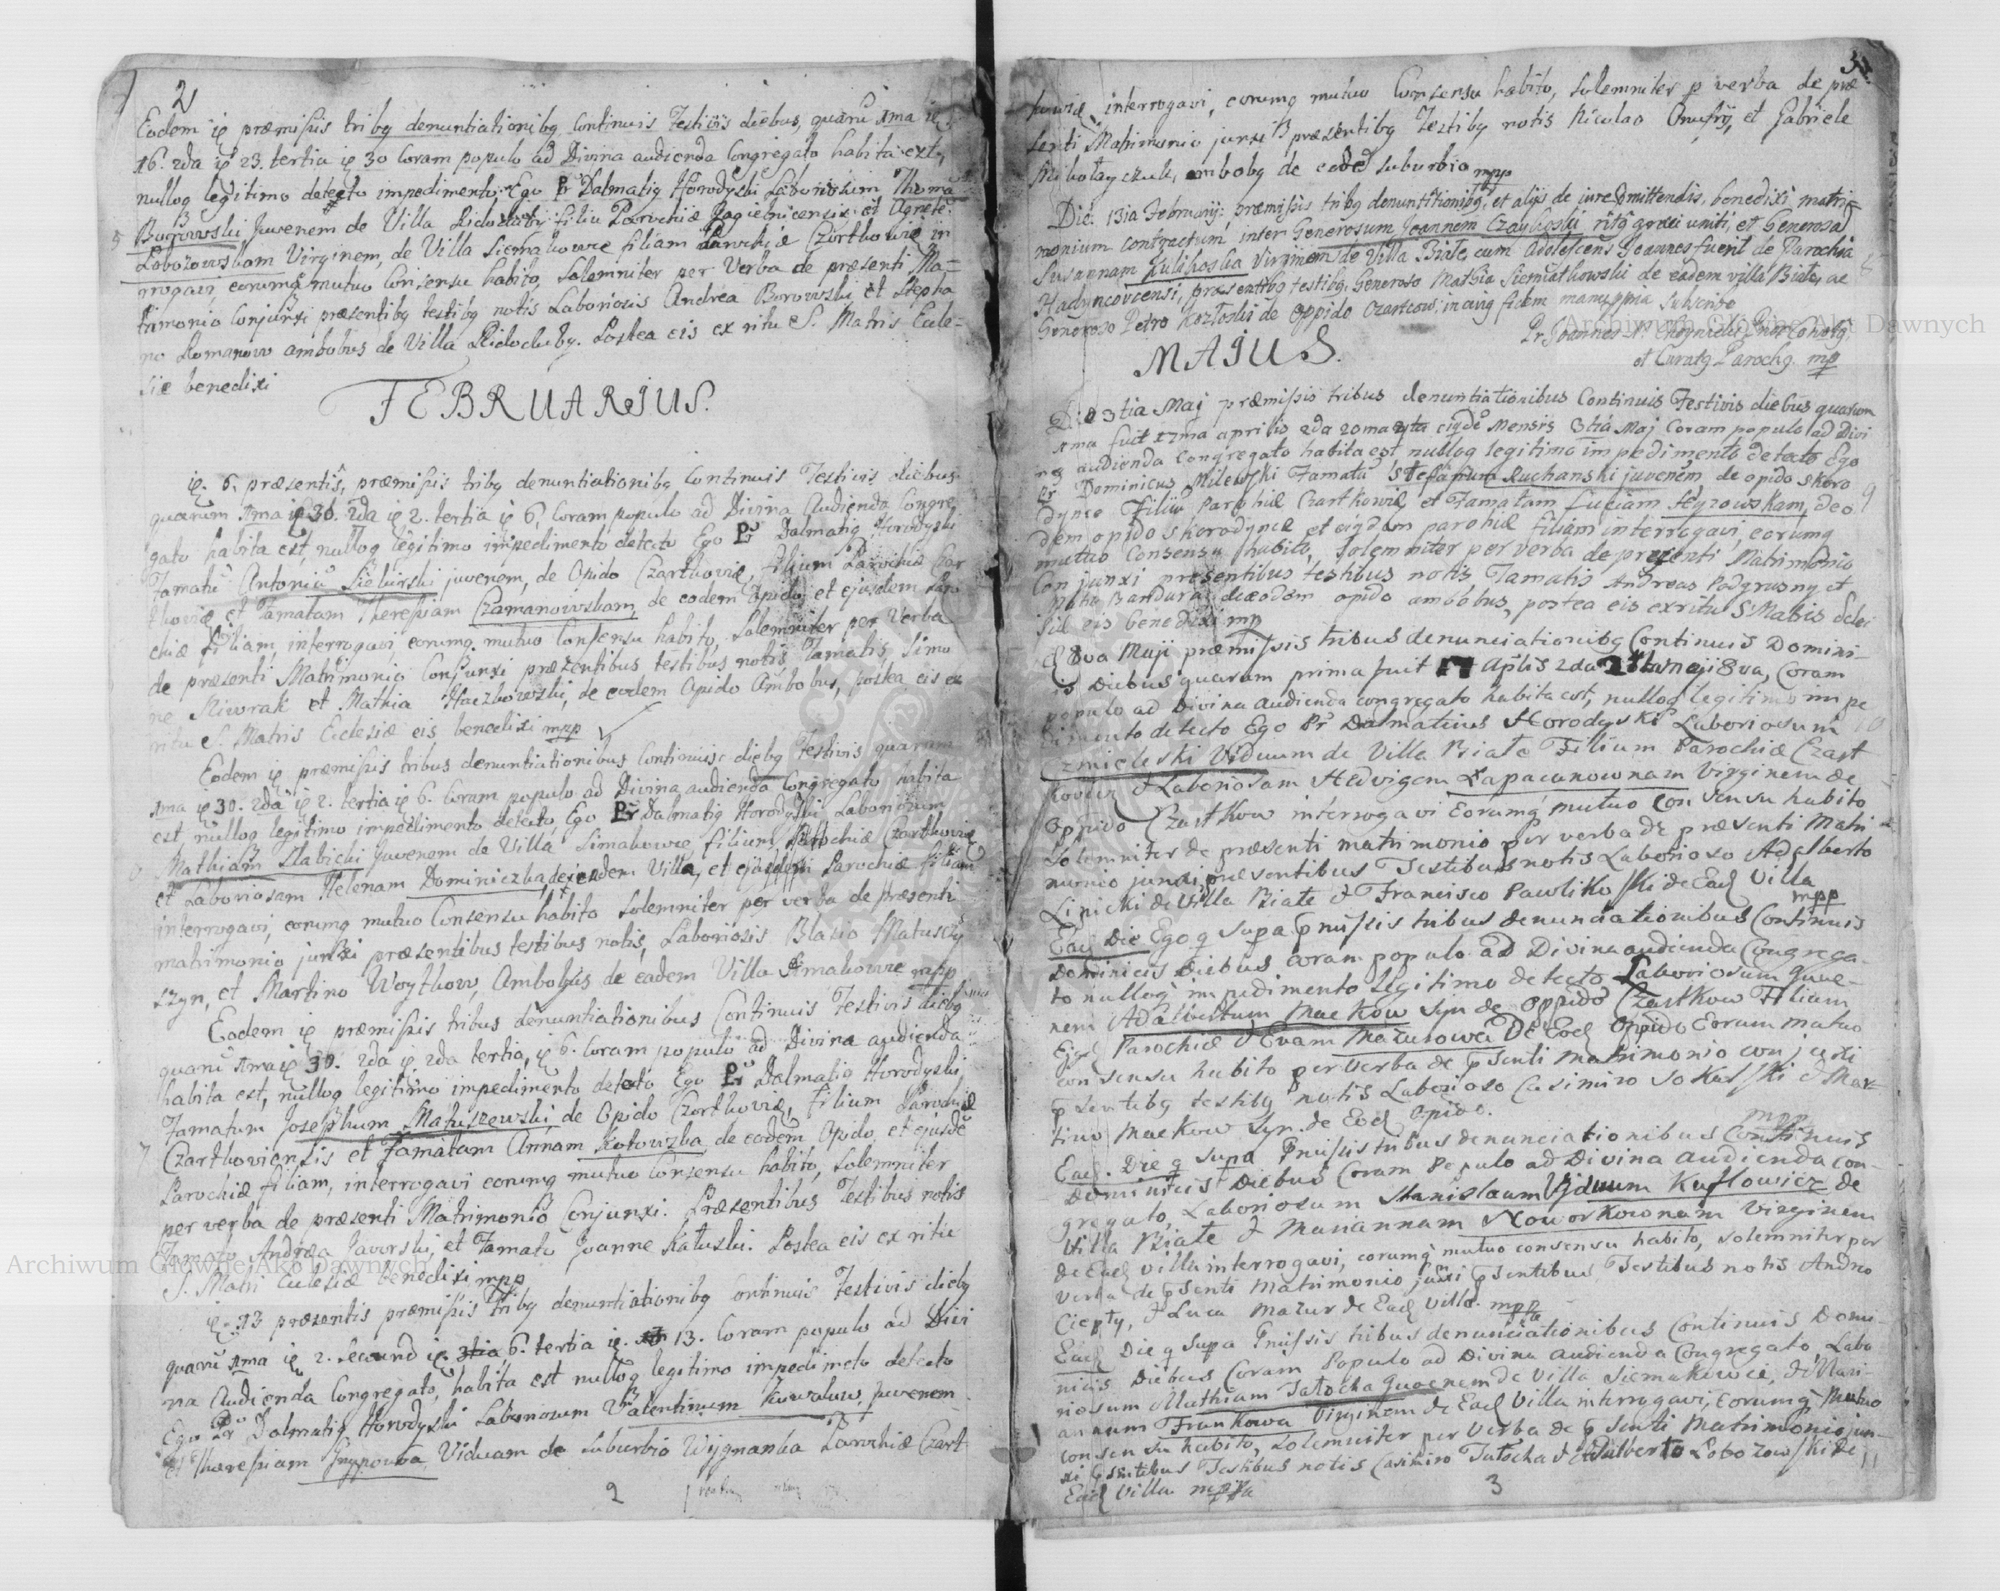 2
Eodem ię præmissis tribq denuntiationibq Continuis Festivis diebus, quarũ 1ma ię
16. 2da ię 23. tertia ię 30 Coram populo ad Divina audienda Congregato habita est,
nulloq legitimo detecto impedimento, Ego Pr Dalmatiq Horodyski Laboriosum Thoma
Juvenem de Villa filiu Parochiæ Jagielnicensis et Agnete
5
Lobozowskam Virginem, de Villa Siemakowce filiam Parochiæ Czortkoviæ in
rrogavi, eorumq mutuo Consensu habito, Solemniter per Verba de præsenti Ma-
trimonio Conjunxi præsentibq testibq notis Laboriosis Andrea Borowski et Stepha
no Romanow ambobus de Villa Postea eis ex ritu S. Matris Eccle-
siæ benedixi
FEBRUARIUS.
ię. 6. præsentis, præmissis tribq denuntiationibq Continuis Festivis diebus
quarum 1ma ię 30. 2da ię 2. tertia ię 6, Coram populo ad Divina Audienda Congre-
gato habita est, nulloq legitimo impedimento detecto Ego Pr Dalmatiq Horodyski
Famatũ Antoniũ juvenem, de Opido Czortkoviæ, filium Parochiæ Czor
tkoviæ et Famatam Theresiam Czamanowskam, de eodem Opido, et ejusdem Paro
chiæ filiam, interrogavi, eorumq mutuo Consensu habito, Solemniter per Verba
de præsenti Matrimonio Conjunxi præsentibus testibus notis Famatis, Simo
ne et Mathia de eodem Opido Ambobus, postea eis ex
ritu S. Matris Eclesiæ eis benedixi mpp
Eodem ię præmissis tribus denuntiationibus Continuis diebq Festivis quarum
1ma ię 30. 2da ię 2. tertia ię 6. Coram populo ad Divina audienda Congregato habita
est nulloq legitimo impedimento detecto, Ego Pr Dalmatiq Horodyski Laboriosum
Mathiam Slabicki Juvenem de Villa Simakowce, filium Parochiæ Czortkoviæ
et Laboriosam Helenam Dominiczka, de eadem Villa, et ejusdem Parochiæ filiam
interrogavi, eorumq mutuo Consensu habito Solemniter per verba de præsenti
matrimonio junxi præsentibus testibus notis, Laboriosis Blasio Matuszy
szyn, et Martino Woytkow, Ambobus de eadem Villa Simakowce mpp
Eodem ię præmissis tribus denuntiationibus Continuis Festivis diebq
quarũ 1ma ię 30. 2da ię 2da tertia, ię 6. Coram populo ad Divina audienda
habita est, nulloq legitimo impedimento detecto Ego Pr Dalmatiq Horodyski
Famatum Josephum Matuszewski, de Opido Czortkoviæ, filium Parochiæ
7
Czortkoviensis et Famatam Annam Kotowizka, de eodem Opido, et ejusdẽ
Parochiæ filiam, interrogavi eorumq mutuo Consensu habito, Solemniter
per verba de præsenti Matrimonio Conjunxi. Præsentibus Testibus notis
Famato Andræa Javorski, et Famato Joanne Kałuski. Postea eis ex ritu
S. Matri Eclesiæ benedixi mpp
ię 13 præsentis præmissis tribq denuntiationibq Continuis Festivis diebq
quarũ 1ma ię 2. secund ię. 3tia 6. tertia ię. 13. Coram populo ad Divi
na Audienda Congregato, habita est nulloq legitimo impedimeto detecto
Ego Pr Dalmatiq Horodyski Laboriosum Valentinum Kowaluw, juvenem
et Theresiam Viduam de Suburbio Wygnanka Parochiæ Czort-
2
3
koviæ interrogavi, eorumq mutuo Consensu habito, Solemniter p verba de præ
senti Matrimonio junxi præsentibq Testibq notis Nicolao Onufrij, et Gabriele
Mikołayczuk, ambobq de eodẽ suburbio mpp
Die. 13ia Februarij; præmissis tribq denuntitionibq, et alijs de jure Dmittendis, benedixi matri-
monium contractum inter Generosum Joannem Czaykoski ritq græci uniti, et Generosa
Susannam Kulikoska Virginem de Villa Białe, cum Adolescens Joannes fuerit de Parochia
8
Hadyncovcensi, præsentibq testibq, Generoso Mathia Siemiatkowski de eadem villa Białe, ac
Generoso Petro Kozłoski de Oppido Czartcow; in cuiq fidem manu ppria Subscribo
Pr Joannes
et Curatq Parochq. mp
MAJUS.
Die 3tia Maj præmissis tribus denuntiationibus Continuis Festivis diebus quarum
1ma fuit 17ma aprilis 2da 20ma ejqdẽ Mensis 3tia Maj Coram populo ad Divi
na audienda congregato habita est, nulloq legitimo impedimento detecto Ego
Pr Dominicus Milewski Famatũ Stefanum Ruchanski juvenem de opido skoro
9
dynce Filiũ Parohiæ Czartkowiæ et Famatam Luciam deo
dem opido skorodynce et ejqdem parohiæ filiam interrogavi, eorumq
mutuo Consensu habito, Solemniter per verba de precenti Matrimonio
Conjunxi presentibus testibus notis, Famatis Andreas Podgrusny et
Bandura de eodem opido ambobus, postea eis ex ritu S Matris Ecle
siæ eis benedixi mp
8va Maji præmissis tribus denunciationibq Continuis Domini-
cis Diebus quarum prima fuit 17 Aplis 2da Maji 8va, Coram
populo ad Divina audienda congregato habita est, nulloq legitimo impe
10
dimento detecto Ego Pr Dalmatius Horodyski Laboriosum
Zmieleski Viduum de Villa Białe Filium Parochiæ Czart
koviæ & Laboriosam Hedvigem Łapacunownam Virginem de
Oppido Czartkow interrogavi Eorumq mutuo consensu habito
Solemniter de præsenti matrimonio per verba de præsenti Matri-
monio junxi, præsentibus Testibus notis Laborioso Adalberto
Linicki de Villa Białe & Francisco Pawlikoski de Ead Villa
mpp
Ead Die Ego q supa pmissis tribus denunciationibus Continuis
Dominicis Diebus coram populo ad Divina audienda Congrega-
to nulloq impedimento legitimo detecto, Laboriosum Juve-
nem Adalbertum Maekow syn de Oppido Czartkow Filium
Ejqd Parochiæ & Evam Mazurowa De Eod Oppido Eorum mutuo
consensu habito per Verba de psenti matrimonio conjuxi
psentibq testibq notis Laborioso Casimiro Sokulski & Mar-
tino Maekow Syn. de Eod Opido.
mpp
Ead. Die q supa Pmissis tribus denunciationibus Continuis
Dominicis Diebus Coram Populo ad Divina audienda Con-
gregato, Laboriosum Stanislaum Viduum Kuflowicz de
Villa Białe & Mariannam Noworkownam Virginem
de Ead villa interrogavi, eorumq mutuo consensu habito, solemniter per
Verba de psenti Matrimonio junxi psentibus Testibus notis Andreo
Ciepły, & Luca Mazur de Ead Villa. mpp
Ead Die q supa Pmissis tribus denunciationibus Continuis Domi-
nicis Diebus Coram Populo ad Divina audienda Congregato, Labo-
riosum Mathiam Tatocha Juvenem de Villa Siemakowce, & Mari-
annam Frankowa Virginem de Ead Villa interrogavi, eorumq Mutuo
consensu habito, Solemniter per Verba de psenti Matrimonio jun-
xi psentibus Testibus notis Casimiro Tatocha & Adalberto Lobozowski de
11
Ead Villa mppa
3
Archiwum Główne Akt Dawnych
Archiwum Główne Akt Dawnych